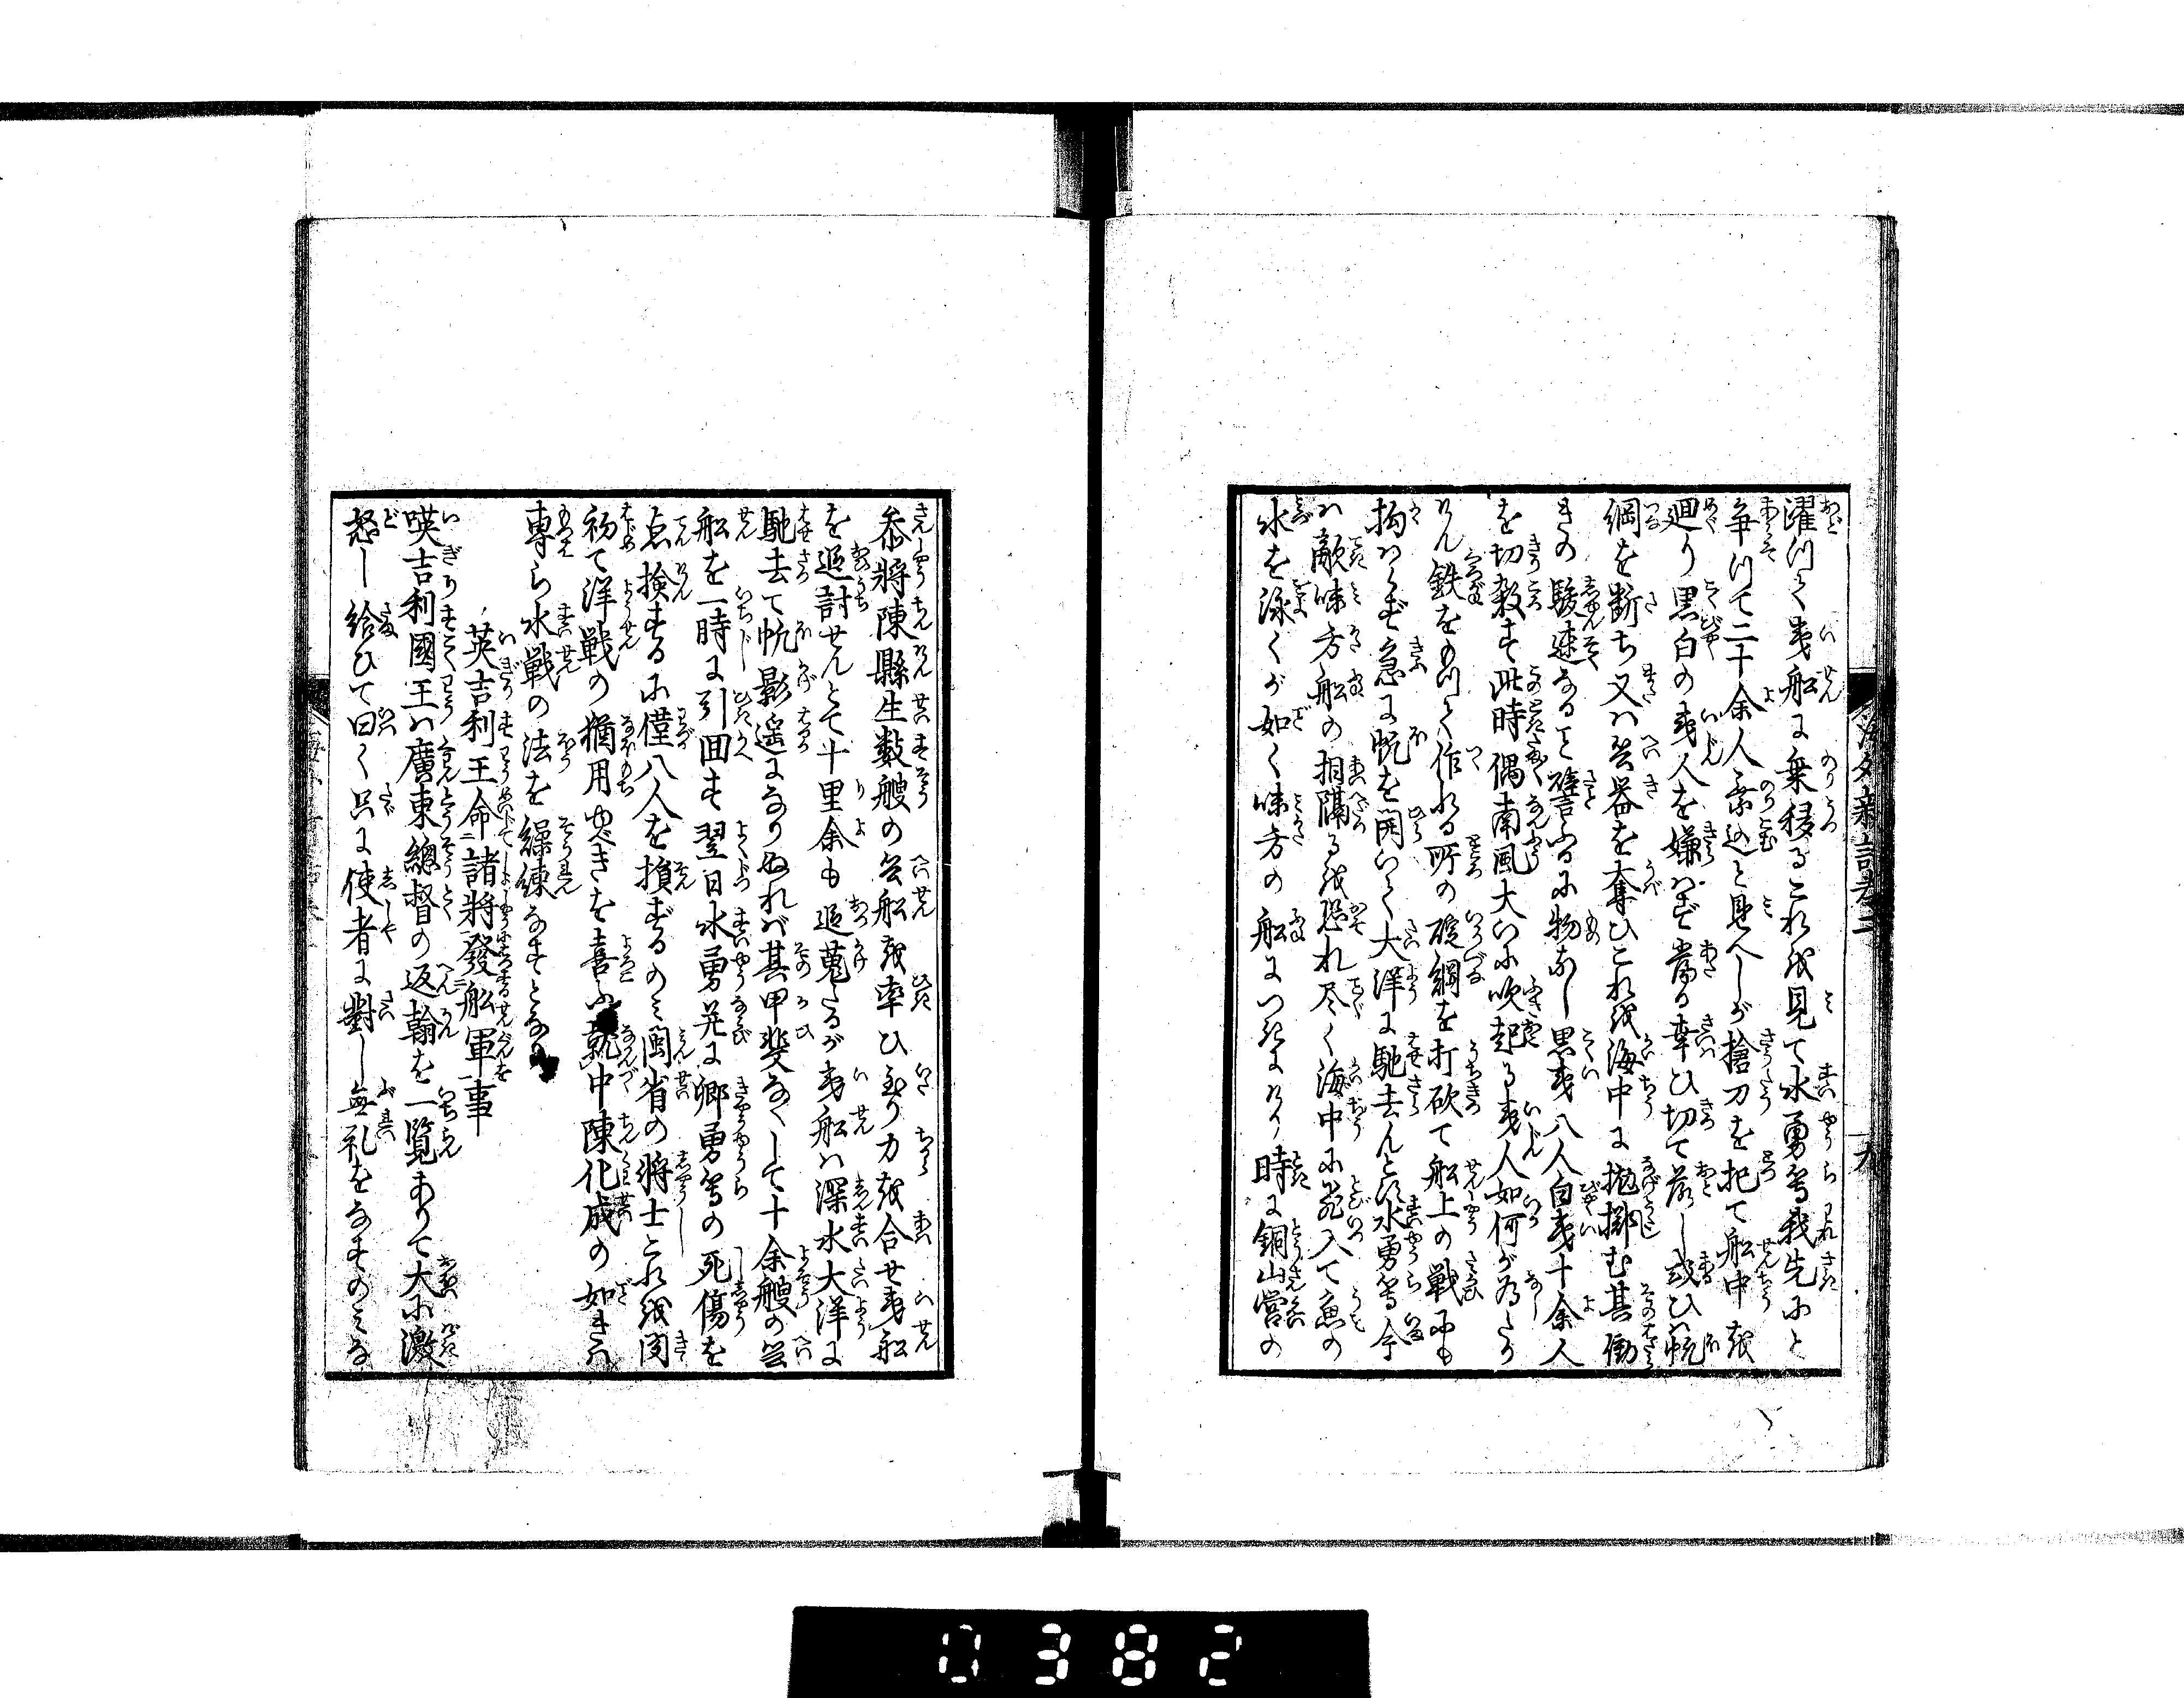 濯つて夷船に乗移るこれを見て水勇等我先にと
争つて二十余人乗込と見へしが鎗刀を把て船中を
廻り黒白の夷人を嫌はず當る幸ひ切て落し或ひは帆
綱を断ち又は兵器を奪ひこれを海中に抛擲む其働
きの駿速なること譬ふるに物なし黒夷八人白夷十余人
を切殺す此時偶南風大いに吹起る夷人如何が為たり
けん鉄をもつて作れる所の碇綱を打砍て船上の戦にも
拘はらず急に帆を開いて大洋に馳去んとす水勇等今
は敵味方船の相隔るを恐れ尽く海中に飛入て魚の
水を泳ぐが如く味方の船につきにけり時に銅山営の
海外新話巻二
九
参將陳縣生數艘の兵船を率ひ至り力を合せ夷船
を追討せんとて十里余も追蒐たるが夷船は深水大洋に
馳去て帆影遥になりぬれば其甲斐なくして十余艘の兵
船を一時に引囬す翌日水勇并に郷勇等の死傷を
点撿するに僅八人を損ずるのみ閩省の将士これを聞
初て洋戦の猶用ゆべきを喜ふ就中陳化成の如きは
専ら水戦の法を繰練なすとなり
英吉利王命諸將發船軍事
㗲吉利國王は廣東總督の返翰を一覧ありて大に激
怒し給ひて曰く只に使者に對し無礼をなすのみな
0382